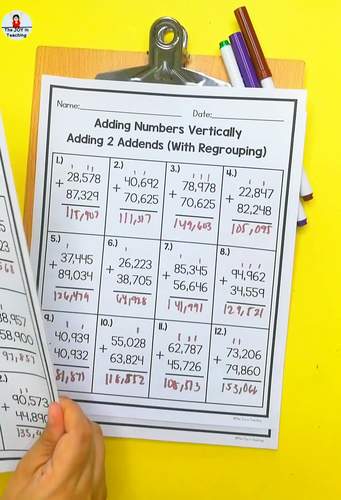 The JOY in
Teaching
Name:
Date:
Adding Numbers Vertically
Adding 2 Addends (With Regrouping)
1.)
1 1 1
28,578
+ 87,329
115,907
2.)
1
40,692
+ 70,625
111,317
3.)
1 1 1
78,978
+ 70,625
149,603
4.)
1 1
22,847
+ 82,248
105,095
5.)
1
37,445
+ 89,034
126,479
6.)
1
26,223
+ 38,705
64,928
7.)
1 1
85,345
+ 56,646
141,991
8.)
1 1 1
94,962
+ 34,559
129,521
9.)
1 1
40,939
+ 40,932
81,871
10.)
1
55,028
+ 63,824
118,852
11.)
1 1 1
62,787
+ 45,726
108,513
12.)
1 1
73,206
+ 79,860
153,066
58,900
97,857
90,573
+ 44,890